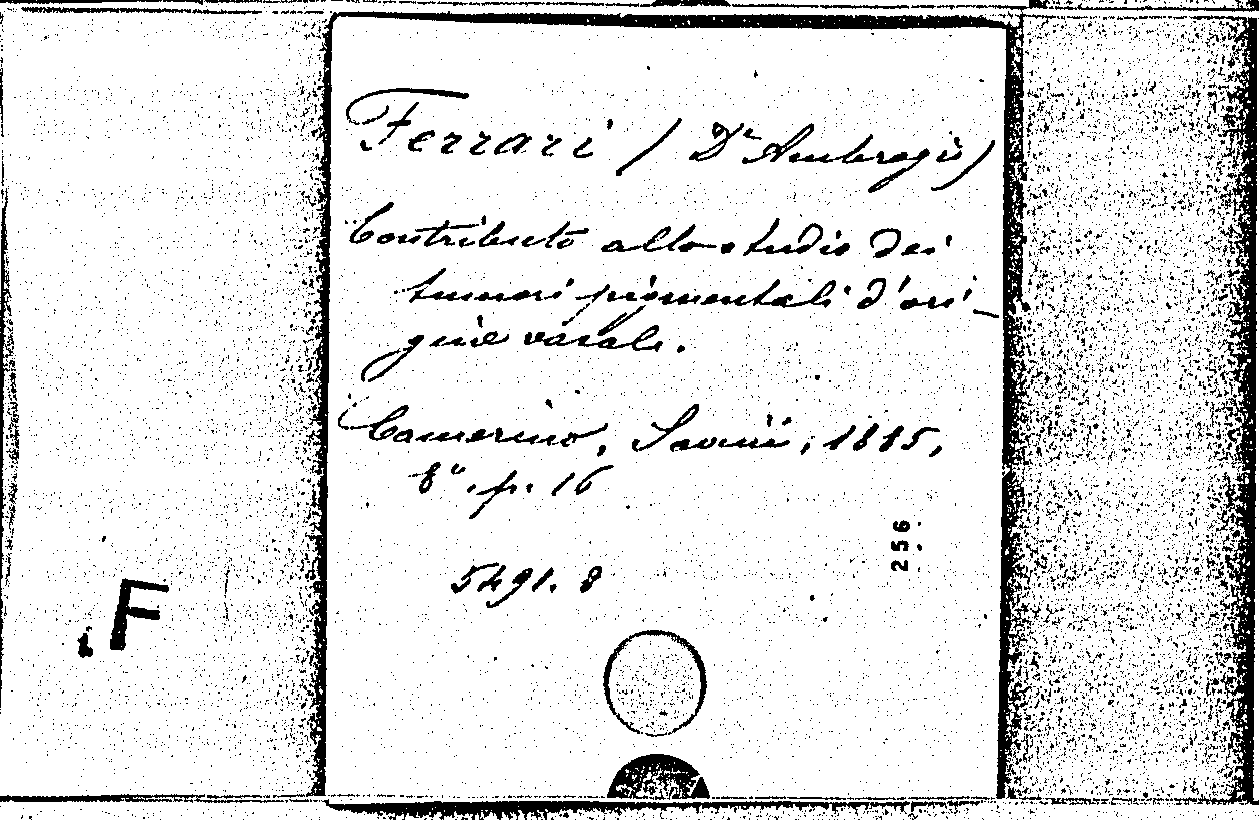 Ferrari (Dr Ambrogio)
Contributo allo studio dei
tumori pigmentali d'ori-
gine vasale.
Camerino, Savini, 1885,
8°. p. 16
5491. 8
256
F